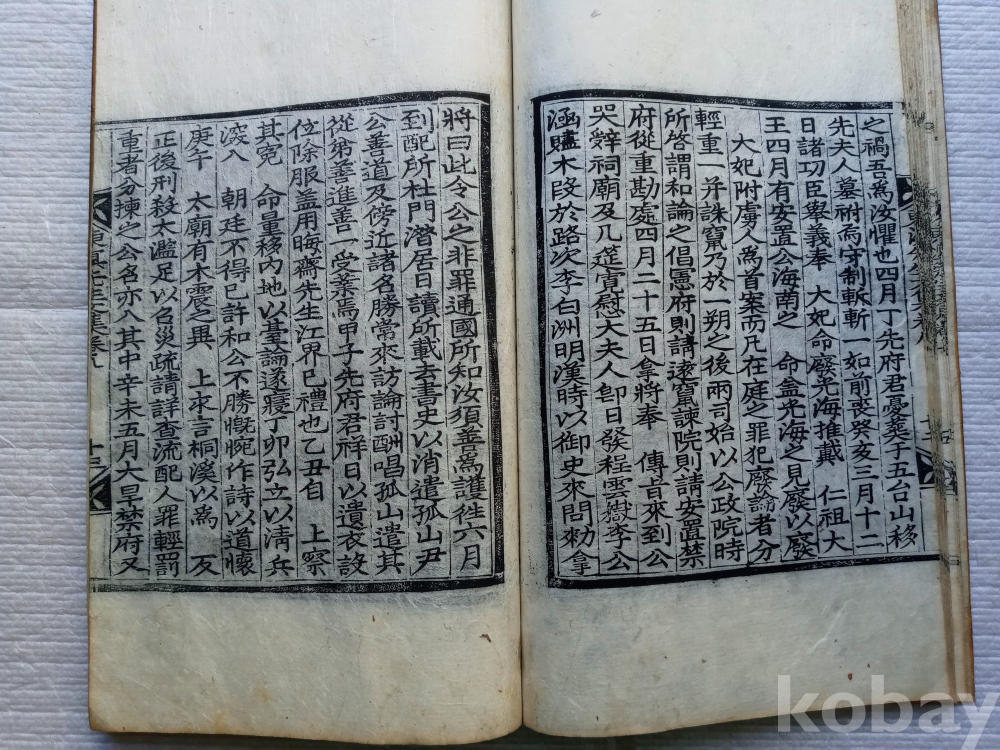 之禍吾爲汝懼也四月丁先府君憂葬于五台山移
先夫人墓祔焉守制斬斬一如前喪癸亥三月十二
日諸功臣擧義奉 大妃命廢光海推戴 仁祖大
王四月有安置公海南之 命盖光海之見廢以廢
大妃附虜人爲首案而凡在庭之罪犯廢論者分
輕重一并誅竄乃於一朔之後兩司始以公政院時
所啓謂和論之倡憲府則請遠竄諫院則請安置禁
府從重勘處四月二十五日拿將奉 傳旨來到公
哭辭祠廟及几筵寬慰大夫人卽日發程雲嶽李公
涵贐木段於路次李白洲明漢時以御史來問勑拿
將曰此令公之非罪通國所知汝須善爲護徃六月
到配所杜門潛居日讀所載去書史以消遣孤山尹
公善道及傍近諸名勝常來訪論討酬唱孤山遣其
從弟善進善一受業焉甲子先府君祥日以遺衣設
位除服盖用晦齋先生江界已禮也乙丑自 上察
其寃 命量移內地以臺論遂寢丁卯弘立以淸兵
深入 朝廷不得已許和公不勝慨惋作詩以道懷
庚午 太廟有木震之異 上求言桐溪以爲 反
正後刑殺太濫足以召災疏請詳查流配人罪輕罰
重者分揀之公名亦入其中辛未五月大旱禁府又
kobay